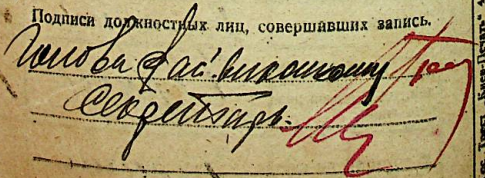 Подписи должностных лиц, совершавших запись.
Голова Рай'виконкому
Секретарь